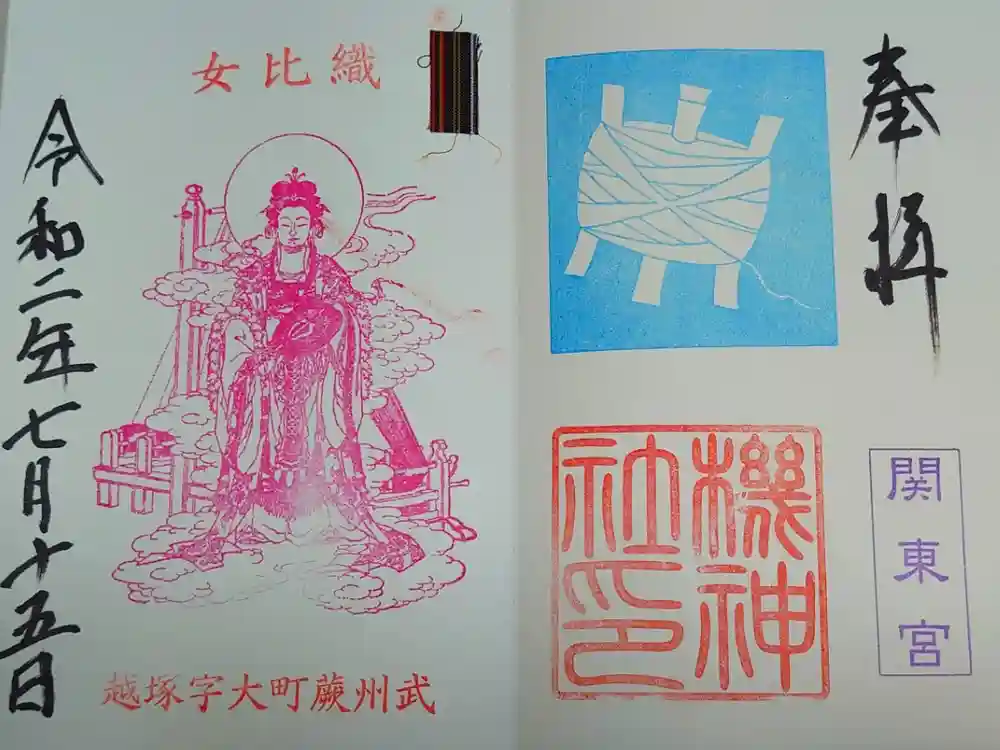 奉拝
関東宮
機神
社印
織比女
令和二年七月十五日
武州蕨町大字塚越